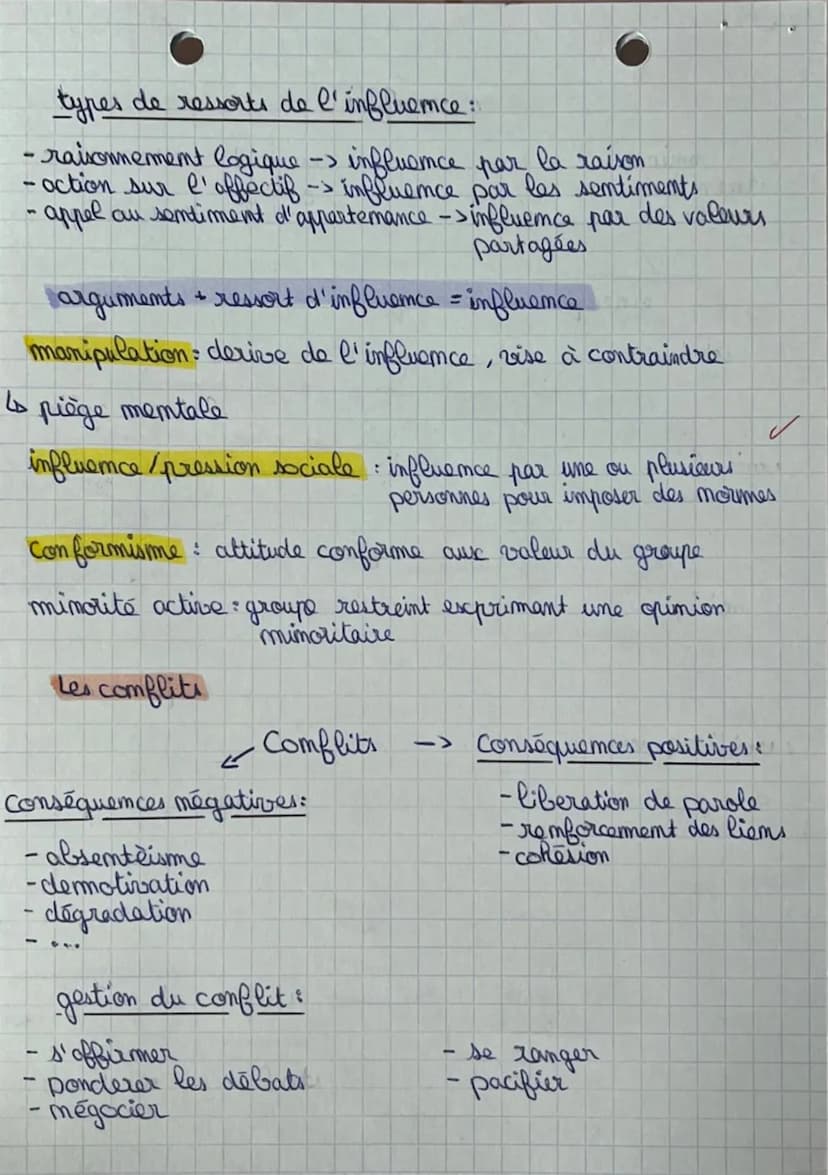 types de ressorts de l'influence :
- raisonnement logique -> influence par la raison
- action sur l'affectif -> influence par les sentiments
- appel au sentiment d'appartenance -> influence par des valeurs
partagées
arguments + ressort d'influence = influence
manipulation : derive de l'influence, vise à contraindre
↳ piège mentale
influence / pression sociale : influence par une ou plusieurs
personnes pour imposer des normes
Conformisme : attitude conforme aux valeur du groupe
minorité active : groupe restreint exprimant une opinion
minoritaire
Les conflits
↙ Conflits -> Conséquences positives :
Conséquences négatives :
- liberation de parole
- renforcement des liens
- cohésion
- absentèisme
- demotivation
- dégradation
- ...
gestion du conflit :
- s'affirmer
- ponderer les débats
- négocier
- se ranger
- pacifier